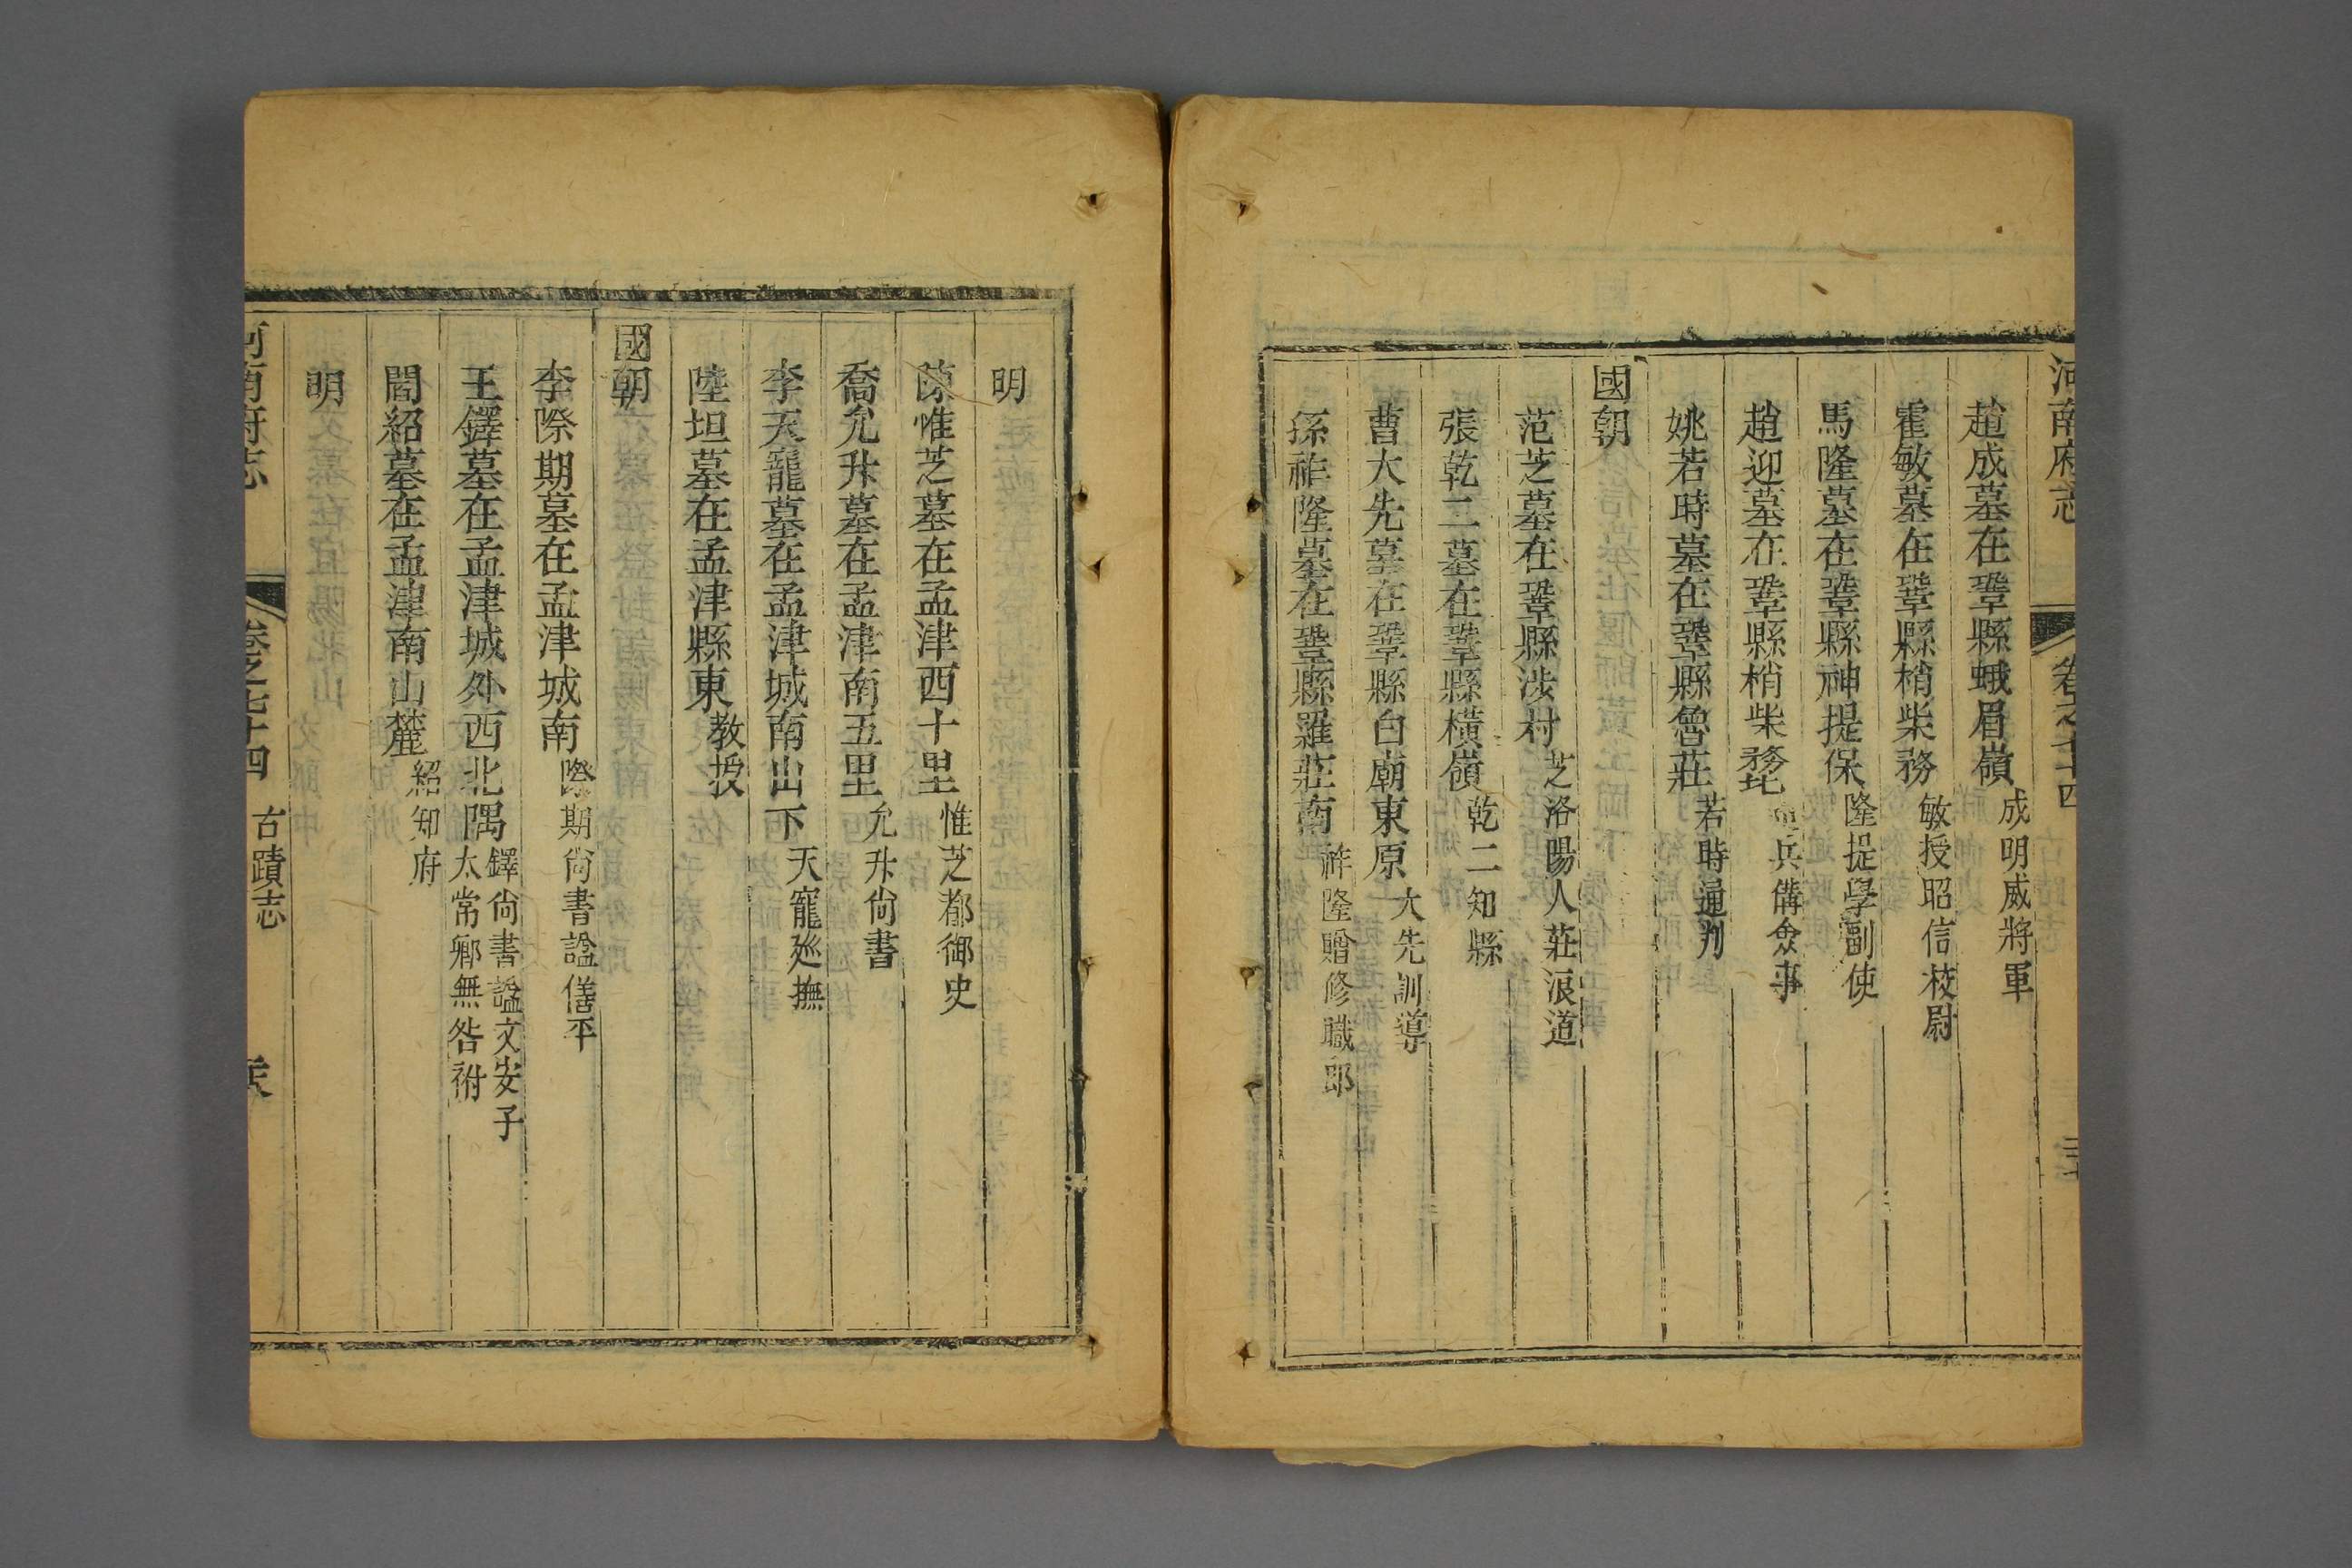 河南府志 卷之七十四
趙成墓在鞏縣蛾眉嶺 成明威將軍
霍敏墓在鞏縣梢柴務 敏授昭信校尉
馬隆墓在鞏縣神提保 隆提學副使
趙迎墓在鞏縣梢柴務北 兵備僉事
姚若時墓在鞏縣魯莊 若時通判
國朝
范芝墓在鞏縣涉村 芝洛陽人莊浪道
張乾二墓在鞏縣橫嶺 乾二知縣
曹大先墓在鞏縣白廟東原 大先訓導
孫祚隆墓在鞏縣羅莊南 祚隆贈修職郎
明
陳惟芝墓在孟津西十里 惟芝都御史
喬允升墓在孟津南五里 允升尚書
李天寵墓在孟津城南山下 天寵廵撫
陸坦墓在孟津縣東 教授
國朝
李際期墓在孟津城南 際期尚書諡僖平
王鐸墓在孟津城外西北隅 鐸尚書諡文安子
太常卿無咎祔
閻紹墓在孟津南山麓 紹知府
明
河南府志 卷之七十四 古蹟志